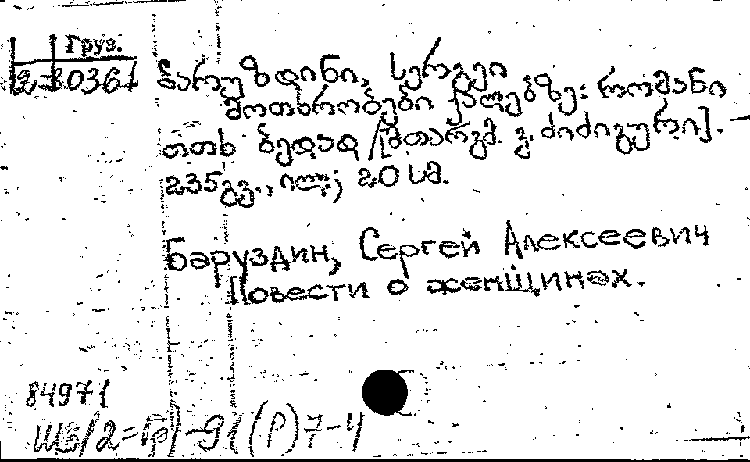 Груз.
2-30361
ბარუზდინი, სერგეი
მოთხრობები ქალებზე: რომანი
ოთხ ბედად /[მთარგმ. გ. ძიძიგური].
235გვ., ილ; 20 სმ.
Баруздин, Сергей Алексеевич
Повести о женщинах.
84971